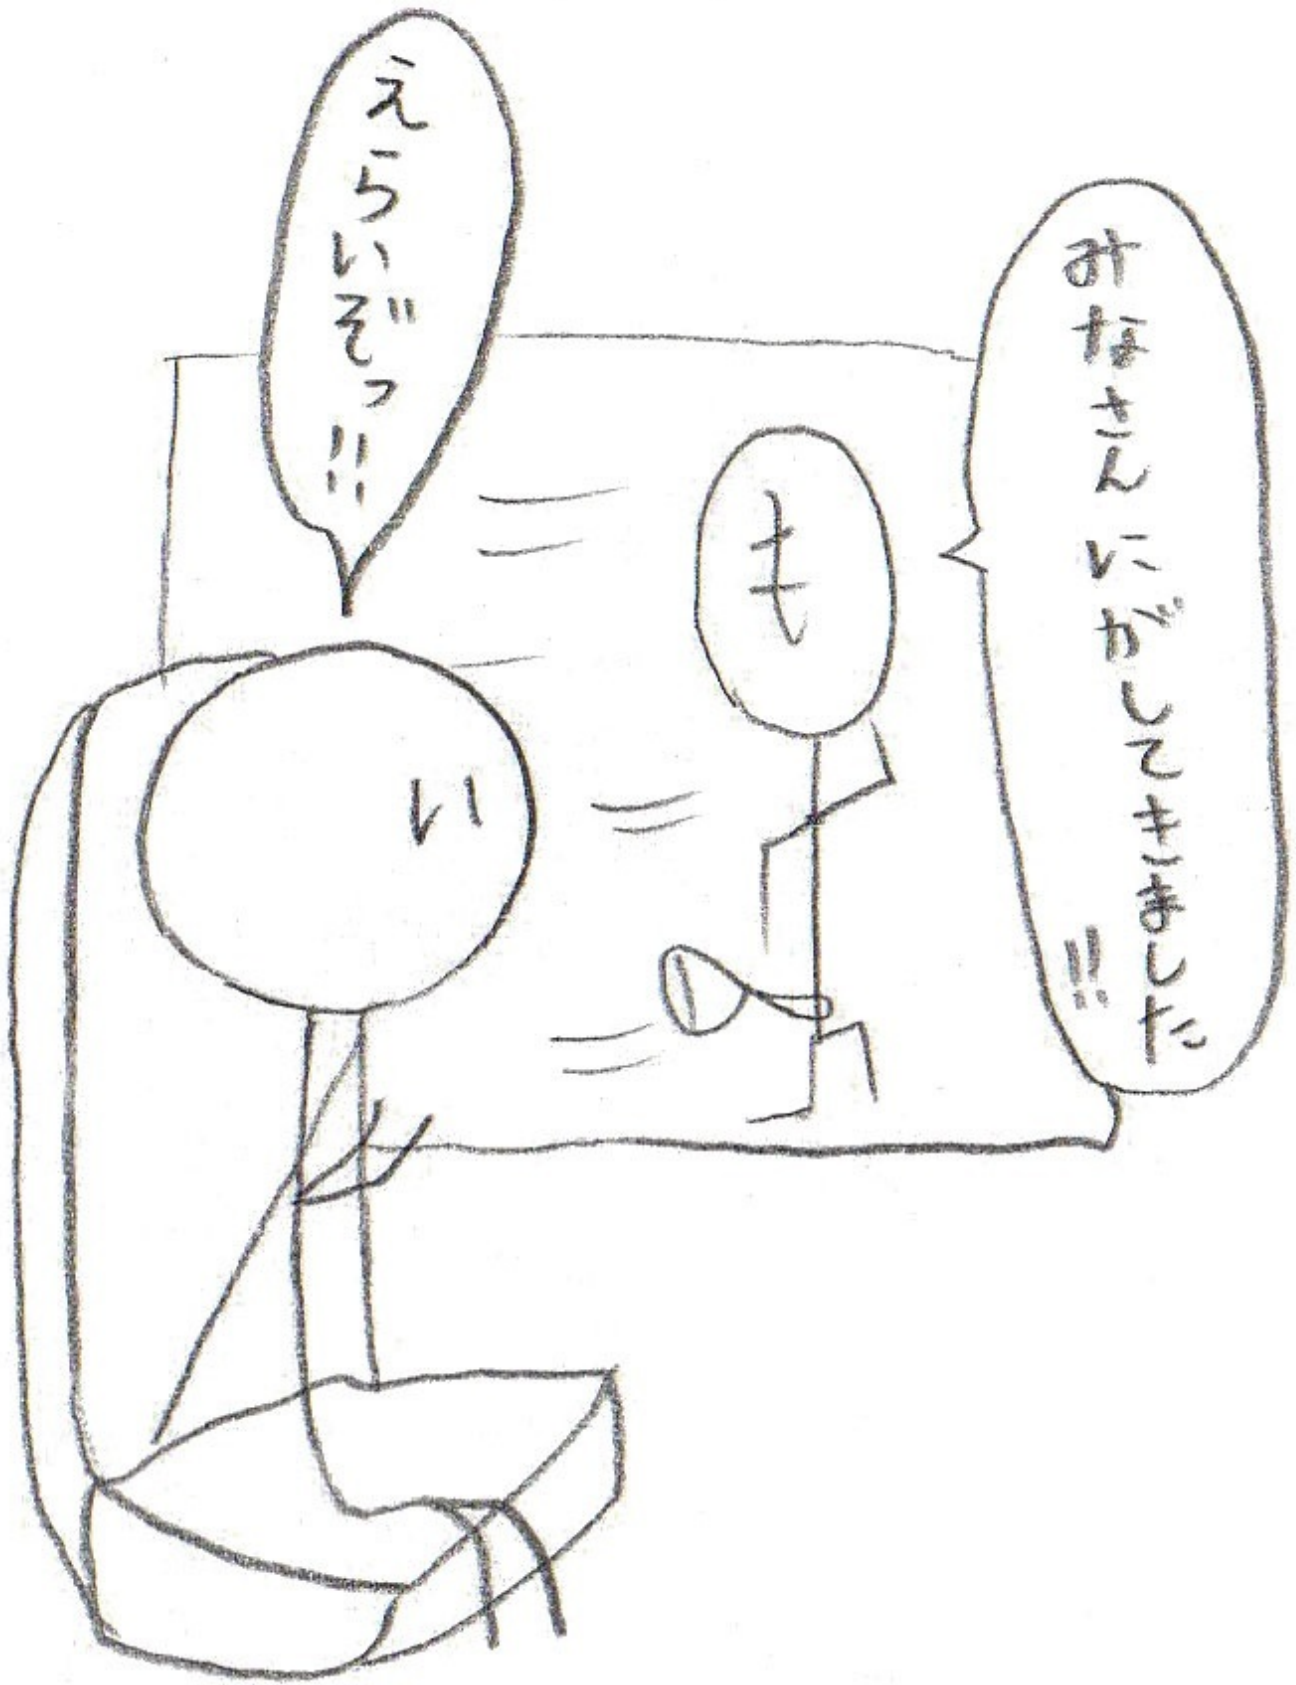 みなさんにがしてきました
!!
も
えらいぞっ!!
い